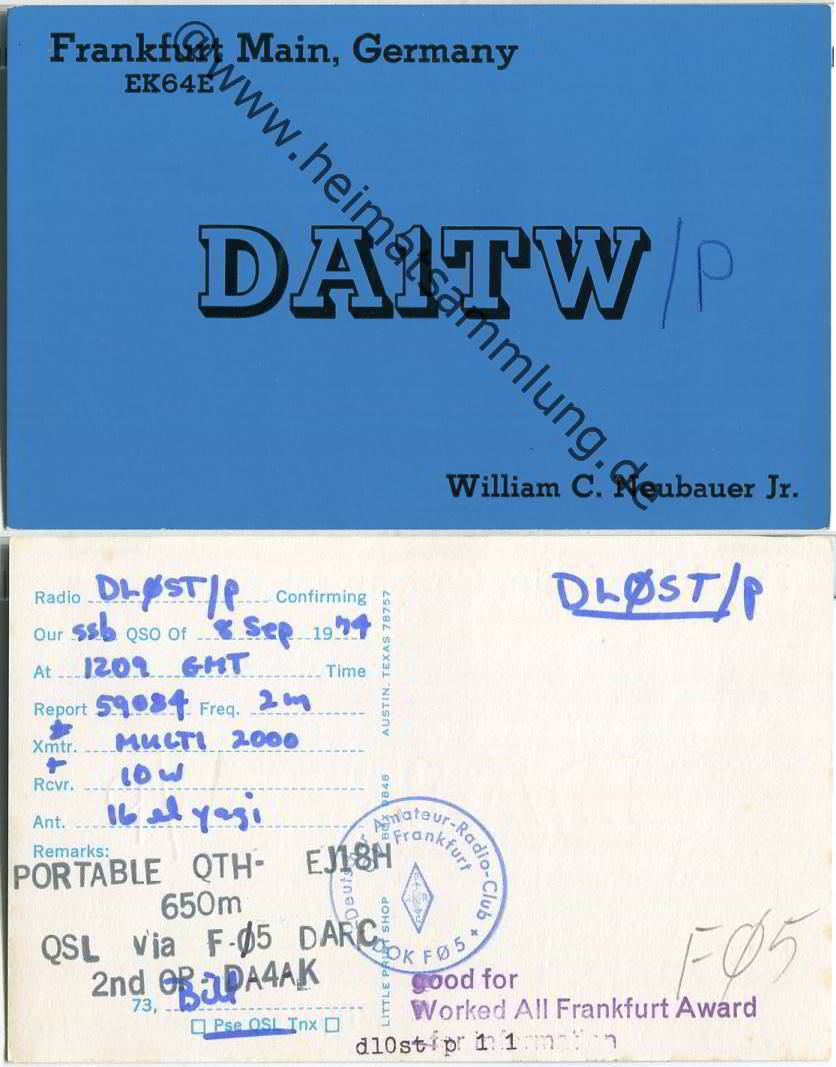 Frankfurt Main, Germany
EK64E
DA1TW/p
William C. Neubauer Jr.
©www.heimatsammlung.de
Radio DLØST/p Confirming
Our ssb QSO Of 8 Sep 1974
At 1209 GMT Time
Report 59084 Freq. 2m
Xmtr. MULTI 2000
+
Rcvr. 10W
Ant. 16 el yagi
Remarks:
PORTABLE QTH- EJ18H
650m
QSL via F-Ø5 DARC
2nd OP. DA4AK
73, Bill
Pse QSL Tnx
LITTLE PRINT SHOP BOX 9848 AUSTIN, TEXAS 78757
DLØST/p
Deutscher Amateur-Radio-Club
Frankfurt
DOK FØ5
FØ5
good for
Worked All Frankfurt Award
for information
dl0st/p 1 1